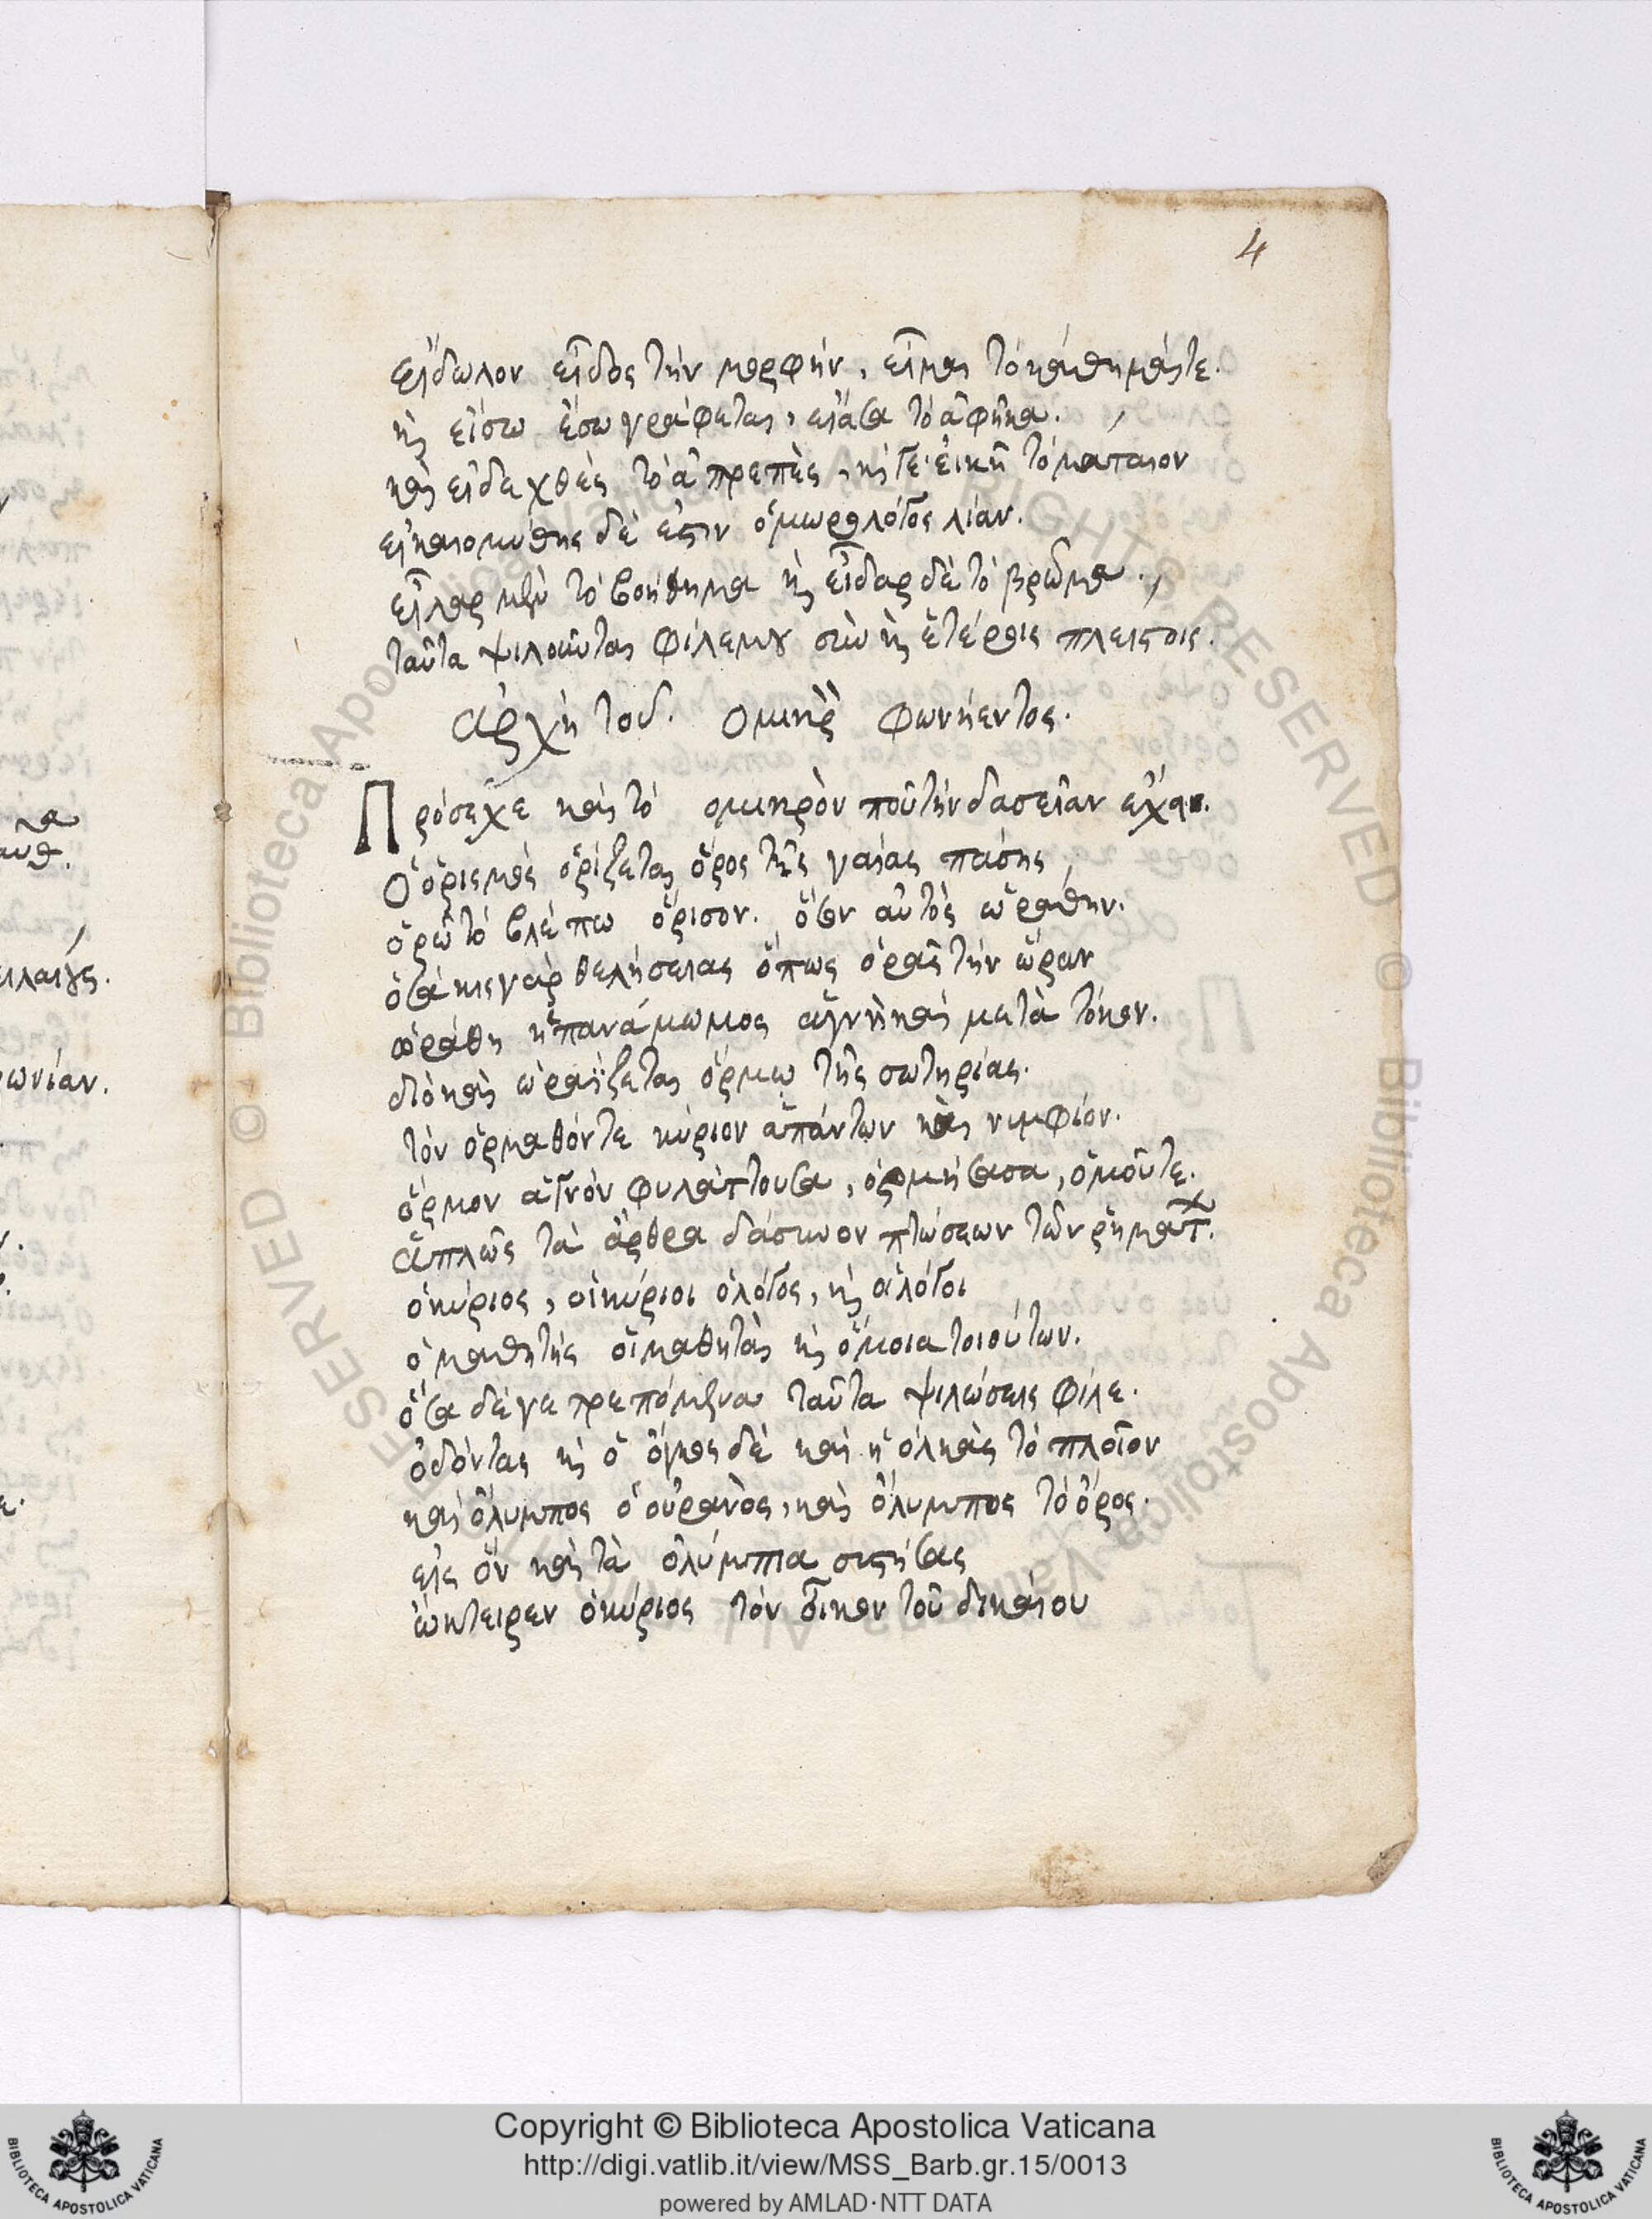 4
εἴδωλον εἶδος τὴν μορφήν, εἶμαι τὸ κάθημαί τε.
καὶ εἴσω ἔσω γράφεται, εἴασα τὸ ἀφῆκα.
καὶ εἰδεχθὲς τὸ ἀπρεπὲς, καί γε εἰκῆ τὸ μάταιον
εἰκαιομύθης δέ ἐστιν ὁ μωρολόγος λίαν.
εἶλαρ μὲν τὸ βοήθημα καὶ εἶδαρ δὲ τὸ βρῶμα.
ταῦτα ψιλοῦνται φίλε μου σὺν καὶ ἑτέροις πλείστοις.
ἀρχὴ τοῦ. ο μικροῦ φωνήεντος.
Πρόσεχε καὶ τὸ ο μικρὸν ποῦ τὴν δασεῖαν ἔχει.
Ὁ ὁρισμὸς ὁρίζεται ὅρος τῆς γαίας πάσης
ὁρῶ τὸ βλέπω ὅρισον. ὅθεν αὐτὸς ὡράθην.
ὁσάκις γὰρ θελήσειας ὅπως ὁρᾷς τὴν ὥραν
ὡράθη ἡ πανάμωμος ἁγνὴ καὶ μετὰ τόκον.
διὸ καὶ ὡραΐζεται ὅρμῳ τῆς σωτηρίας.
τὸν ὁρμαθόν τε κύριον ἁπάντων καὶ νυμφίον.
ὅρμον ἁγνὸν φυλάττουσα, ὁρμήσασα, ὁμοῦ τε.
ἁπλῶς τὰ ἄρθρα δάσυνον πτώσεων τῶν ῥημάτ.
ὁ κύριος, οἱ κύριοι ὁ λόγος, καὶ οἱ λόγοι
ὁ μαθητὴς οἱ μαθηταὶ καὶ ὅμοια τοιούτων.
ὅσα δέ γε τρεπόμενα ταῦτα ψιλώσεις φίλε.
ὀδόντας καὶ ὁ ὄγκος δὲ καὶ ἡ ὁλκὰς τὸ πλοῖον
καὶ ὄλυμπος ὁ οὐρανὸς, καὶ ὄλυμπος τὸ ὄρος.
εἰς ὃν καὶ τὰ ὀλύμπια συστήσας
ᾤκτειρεν ὁ κύριος τὸν οἶκον τοῦ δικαίου
Copyright © Biblioteca Apostolica Vaticana
http://digi.vatlib.it/view/MSS_Barb.gr.15/0013
powered by AMLAD·NTT DATA